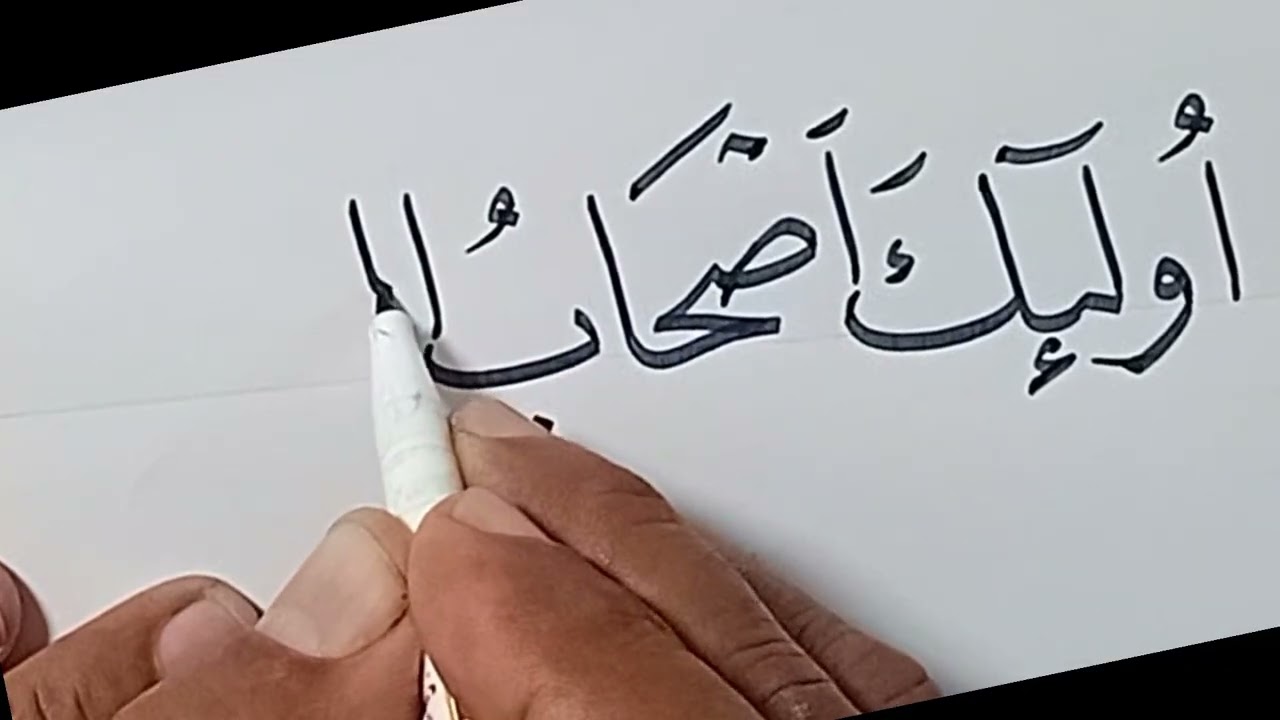 أُولَٰٓئِكَ أَصْحَابُ ال